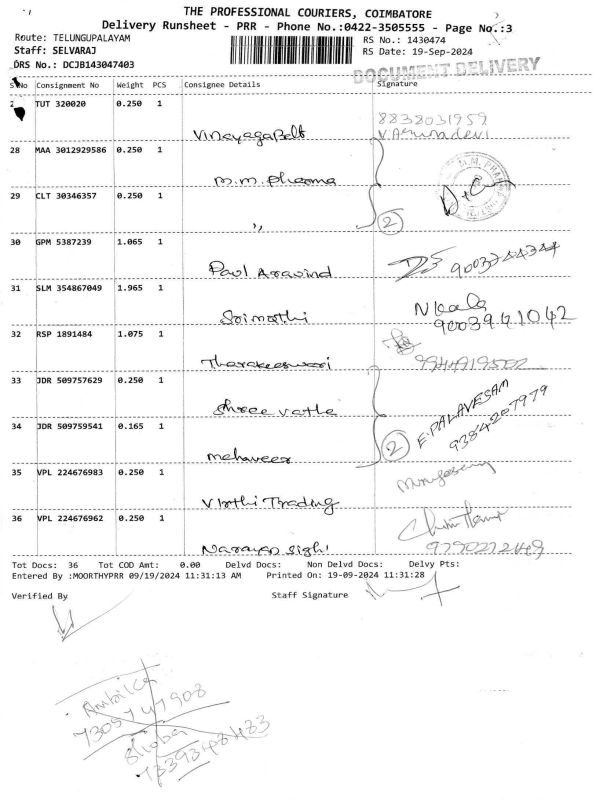 THE PROFESSIONAL COURIERS, COIMBATORE
Delivery Runsheet - PRR - Phone No.:0422-3505555 - Page No.:3
Route: TELUNGUPALAYAM RS No.: 1430474
Staff: SELVARAJ RS Date: 19-Sep-2024
DRS No.: DCJB143047403
DOCUMENT DELIVERY
S.No Consignment No Weight PCS Consignee Details Signature
TUT 320020 0.250 1
8838031959
Vinayaga Belt V.Arunadevi
28 MAA 3012929586 0.250 1
M.M. Pharma
29 CLT 30346357 0.250 1
,, 2
30 GPM 5387239 1.065 1
Paul Aravind
31 SLM 354867049 1.965 1
Srimathi N Kala
9003941042
32 RSP 1891484 1.075 1
33 JDR 509757629 0.250 1
Shree Vatla
34 JDR 509759541 0.165 1
Mehaveer 2 E.PALAVESAM
9384207979
35 VPL 224676983 0.250 1
Virthi Trading
36 VPL 224676962 0.250 1
Narayan Sighi
Tot Docs: 36 Tot COD Amt: 0.00 Delvd Docs: Non Delvd Docs: Delvy Pts:
Entered By :MOORTHYPRR 09/19/2024 11:31:13 AM Printed On: 19-09-2024 11:31:28
Verified By Staff Signature
Ambika
Shoba